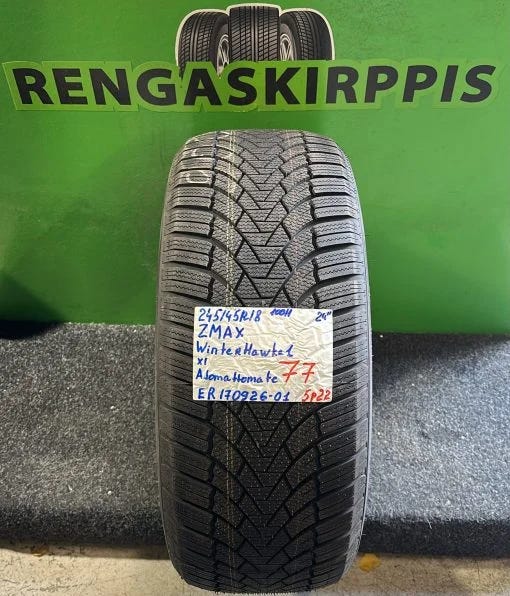 RENGASKIRPPIS
245/45R18 100H 24"
ZMAX
WinterHawke1
X1
Asomattomate 77
ER170926-01 5P22